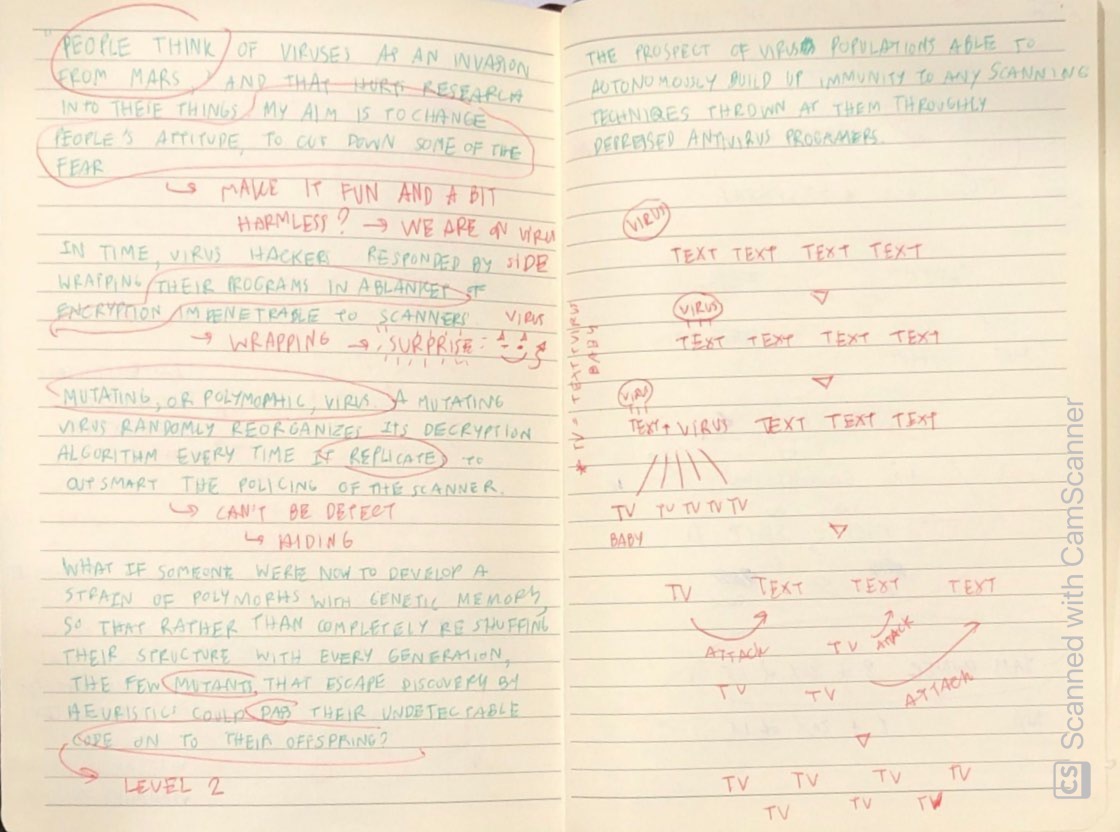 "PEOPLE THINK OF VIRUSES AS AN INVASION
FROM MARS, AND THAT HURTS RESEARCH
INTO THESE THINGS MY AIM IS TO CHANGE
PEOPLE'S ATTITUDE, TO CUT DOWN SOME OF THE
FEAR
MAKE IT FUN AND A BIT
HARMLESS? → WE ARE ON VIRU
SIDE
IN TIME, VIRUS HACKERS RESPONDED BY
WRAPPING THEIR PROGRAMS IN A BLANKET OF
ENCRYPTION IMPENETRABLE TO SCANNERS
VIRUS
→ WRAPPING → SURPRISE:
MUTATING, OR POLYMORPHIC, VIRUS. A MUTATING
VIRUS RANDOMLY REORGANIZES ITS DECRYPTION
ALGORITHM EVERY TIME IT REPLICATE TO
OUTSMART THE POLICING OF THE SCANNER.
CAN'T BE DETECT
HIDING
WHAT IF SOMEONE WERE NOW TO DEVELOP A
STRAIN OF POLYMORPHS WITH GENETIC MEMORY,
SO THAT RATHER THAN COMPLETELY RESHUFFING
THEIR STRUCTURE WITH EVERY GENERATION,
THE FEW MUTANTS THAT ESCAPE DISCOVERY BY
HEURISTICS COULD PAS THEIR UNDETECTABLE
CODE ON TO THEIR OFFSPRING?
LEVEL 2
THE PROSPECT OF VIRUS POPULATIONS ABLE TO
AUTONOMOSLY BUILD UP IMMUNITY TO ANY SCANNING
TECHNIQES THROWN AT THEM THROUGHLY
DEPRESED ANTIVIRUS PROGRAMERS.
VIRUS
TEXT TEXT TEXT TEXT
VIRUS
TEXT TEXT TEXT TEXT
* TV = TEXT VIRUS
BABY
VIRUS
TEXT + VIRUS TEXT TEXT TEXT
TV TV TV TV TV
BABY
TV TEXT TEXT TEXT
ATTACK TV ATTACK
TV TV ATTACK
TV TV TV TV
TV TV TV
CS Scanned with CamScanner